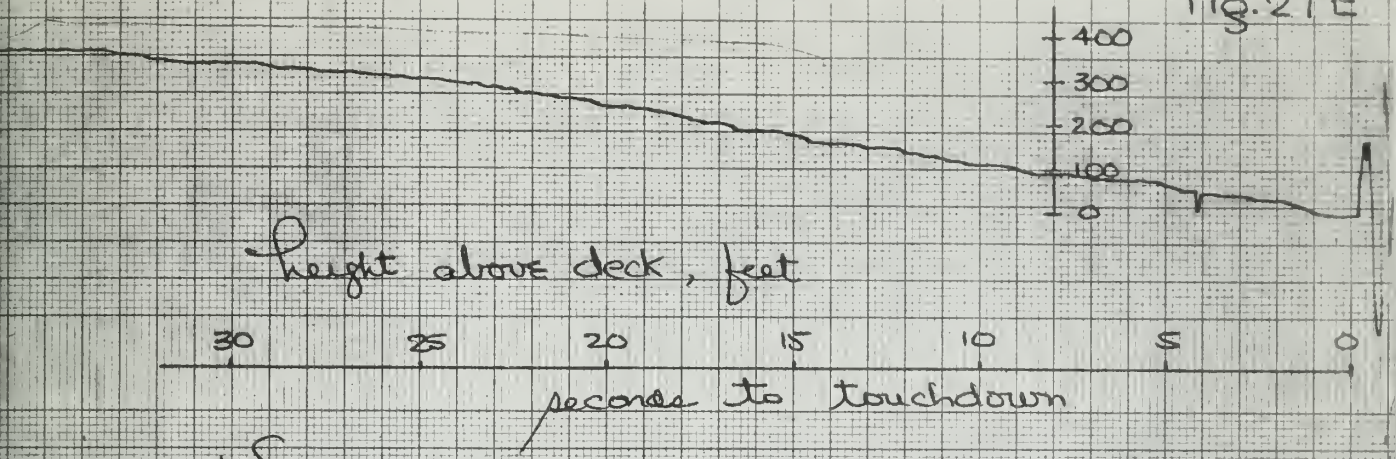 Fig. 27E
400
300
200
100
0
height above deck, feet
30 25 20 15 10 5 0
seconds to touchdown